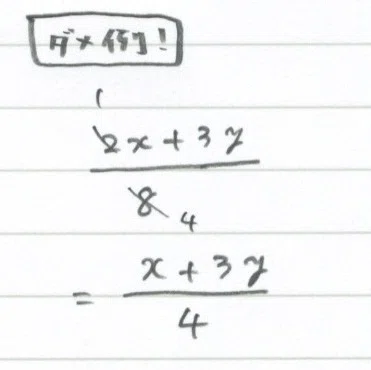 ダメ例!
1
2x + 3y
8 4
= x + 3y
4